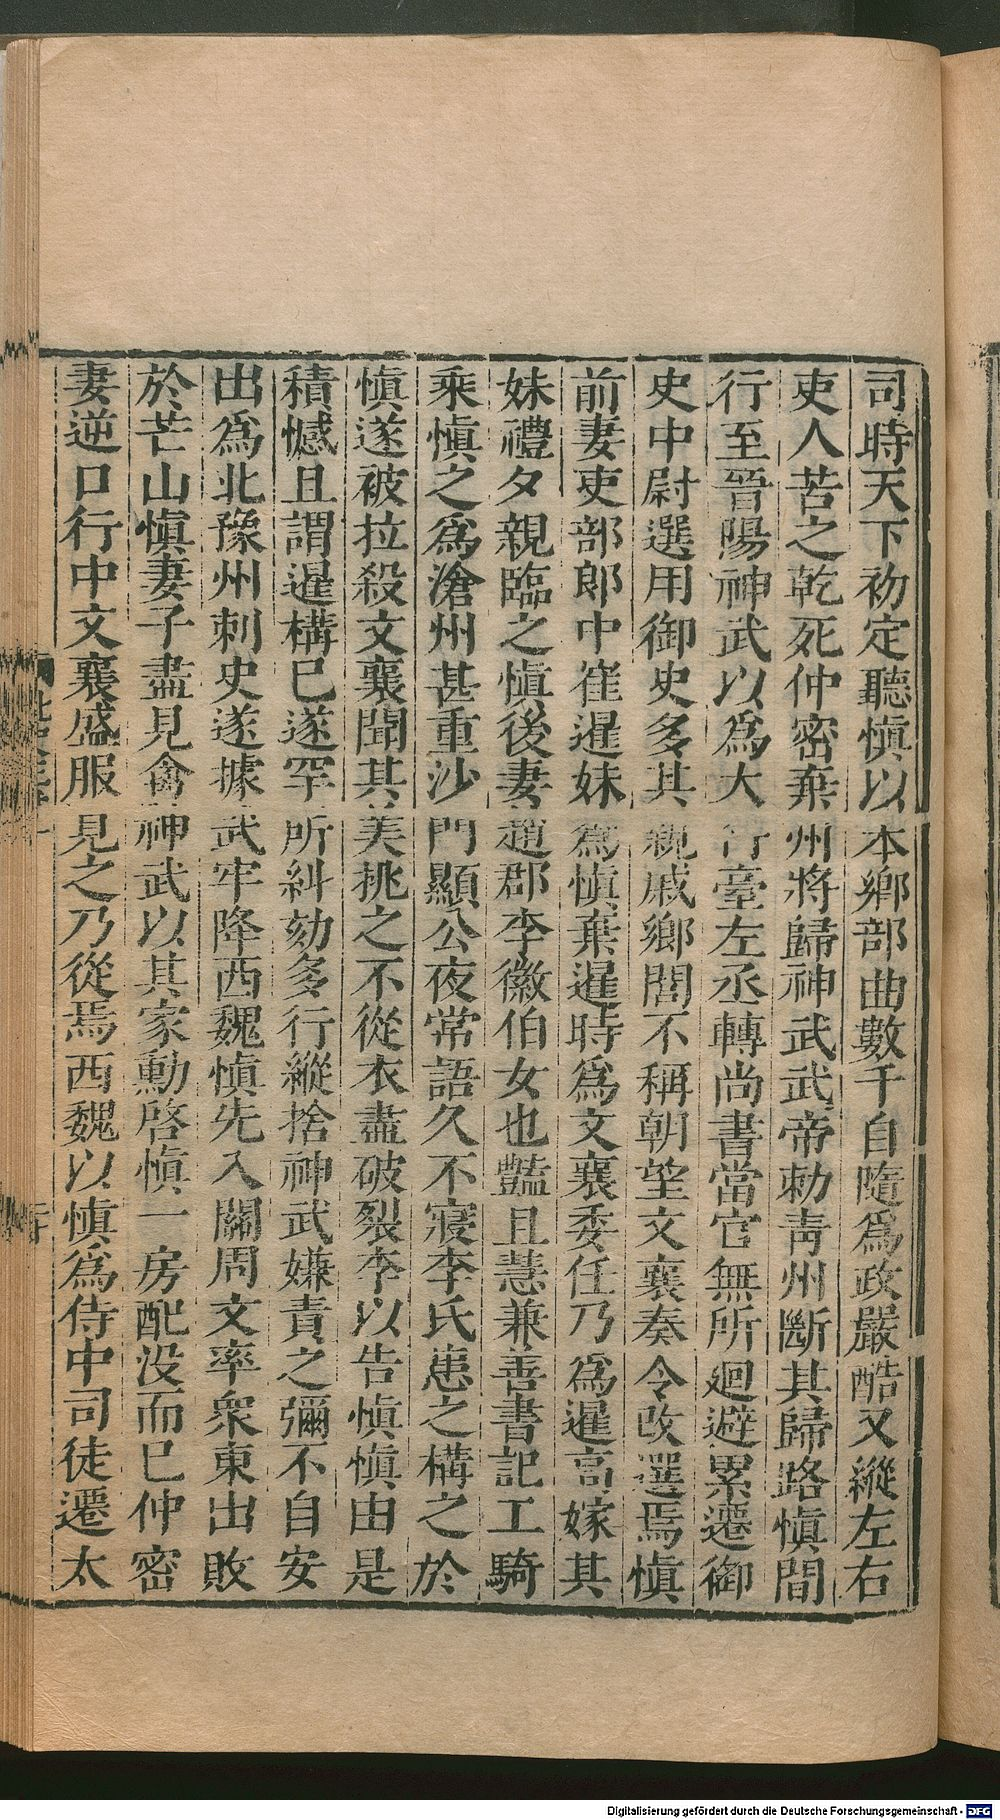 司時天下初定聽慎以本鄉部曲數千自隨爲政嚴酷又縱左右
吏人苦之乾死仲密棄州將歸神武武帝勅靑州斷其歸路慎間
行至晉陽神武以爲大行臺左丞轉尚書當官無所迴避累遷御
史中尉選用御史多其親戚鄉閭不稱朝望文襄奏令改選焉慎
前妻吏部郎中崔暹妹爲慎棄暹時爲文襄委任乃爲暹高嫁其
妹禮夕親臨之慎後妻趙郡李徽伯女也豔且慧兼善書記工騎
乘慎之爲滄州甚重沙門顯公夜常語久不寢李氏患之構之於
慎遂被拉殺文襄聞其美挑之不從衣盡破裂李以告慎慎由是
積憾且謂暹構已遂罕所糾劾多行縱捨神武嫌責之彌不自安
出爲北豫州刺史遂據武牢降西魏慎先入關周文率衆東出敗
於芒山慎妻子盡見禽神武以其家勳啓慎一房配没而已仲密
妻逆口行中文襄盛服見之乃從焉西魏以慎爲侍中司徒遷太
Digitalisierung gefördert durch die Deutsche Forschungsgemeinschaft - DFG